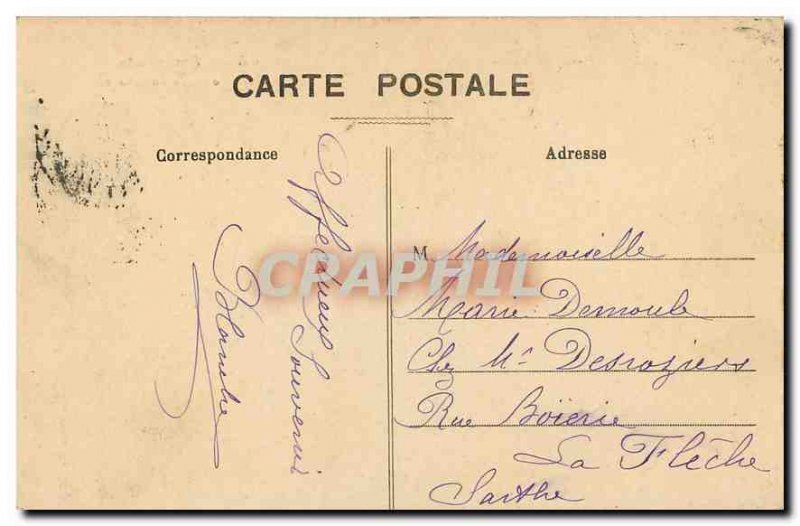 CARTE POSTALE
Correspondance
Adresse
Affectueux Souvenir
Blanche
M Mademoiselle
Marie Demoule
Chez Mr Desroziers
Rue Boierie
La Flèche
Sarthe
CPAPHIL